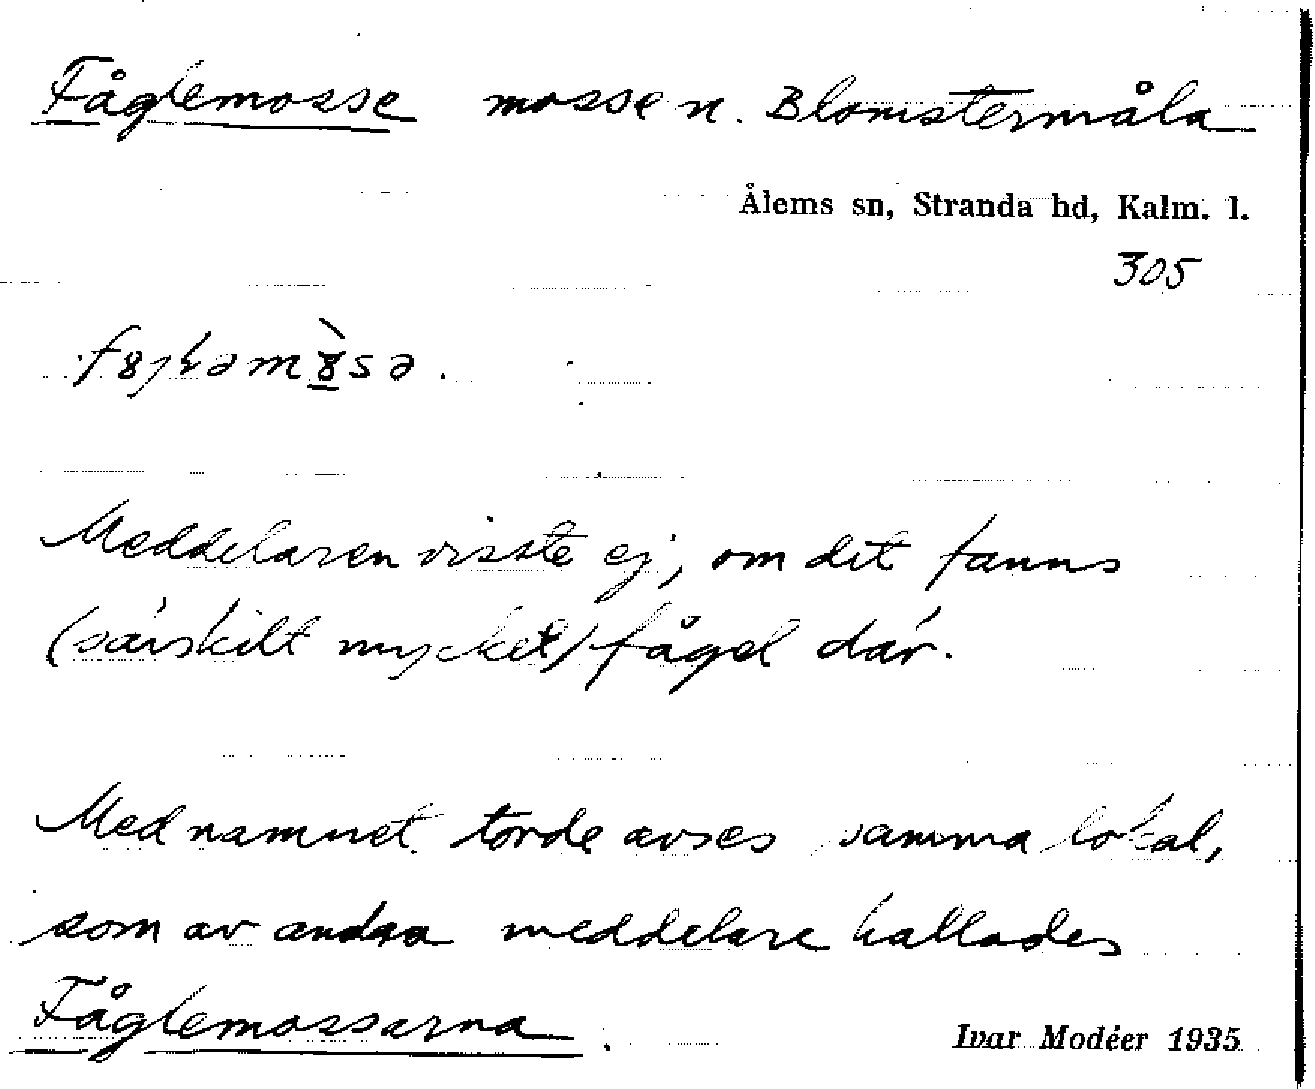 Fåglemosse mosse n. Blomstermåla
Ålems sn, Stranda hd, Kalm. l.
305
Meddelaren visste ej, om det fanns
(särskilt mycket) fågel där.
Med namnet torde avses samma lokal,
som av andra meddelare kallades
Fåglemossarna.
Ivar Modéer 1935